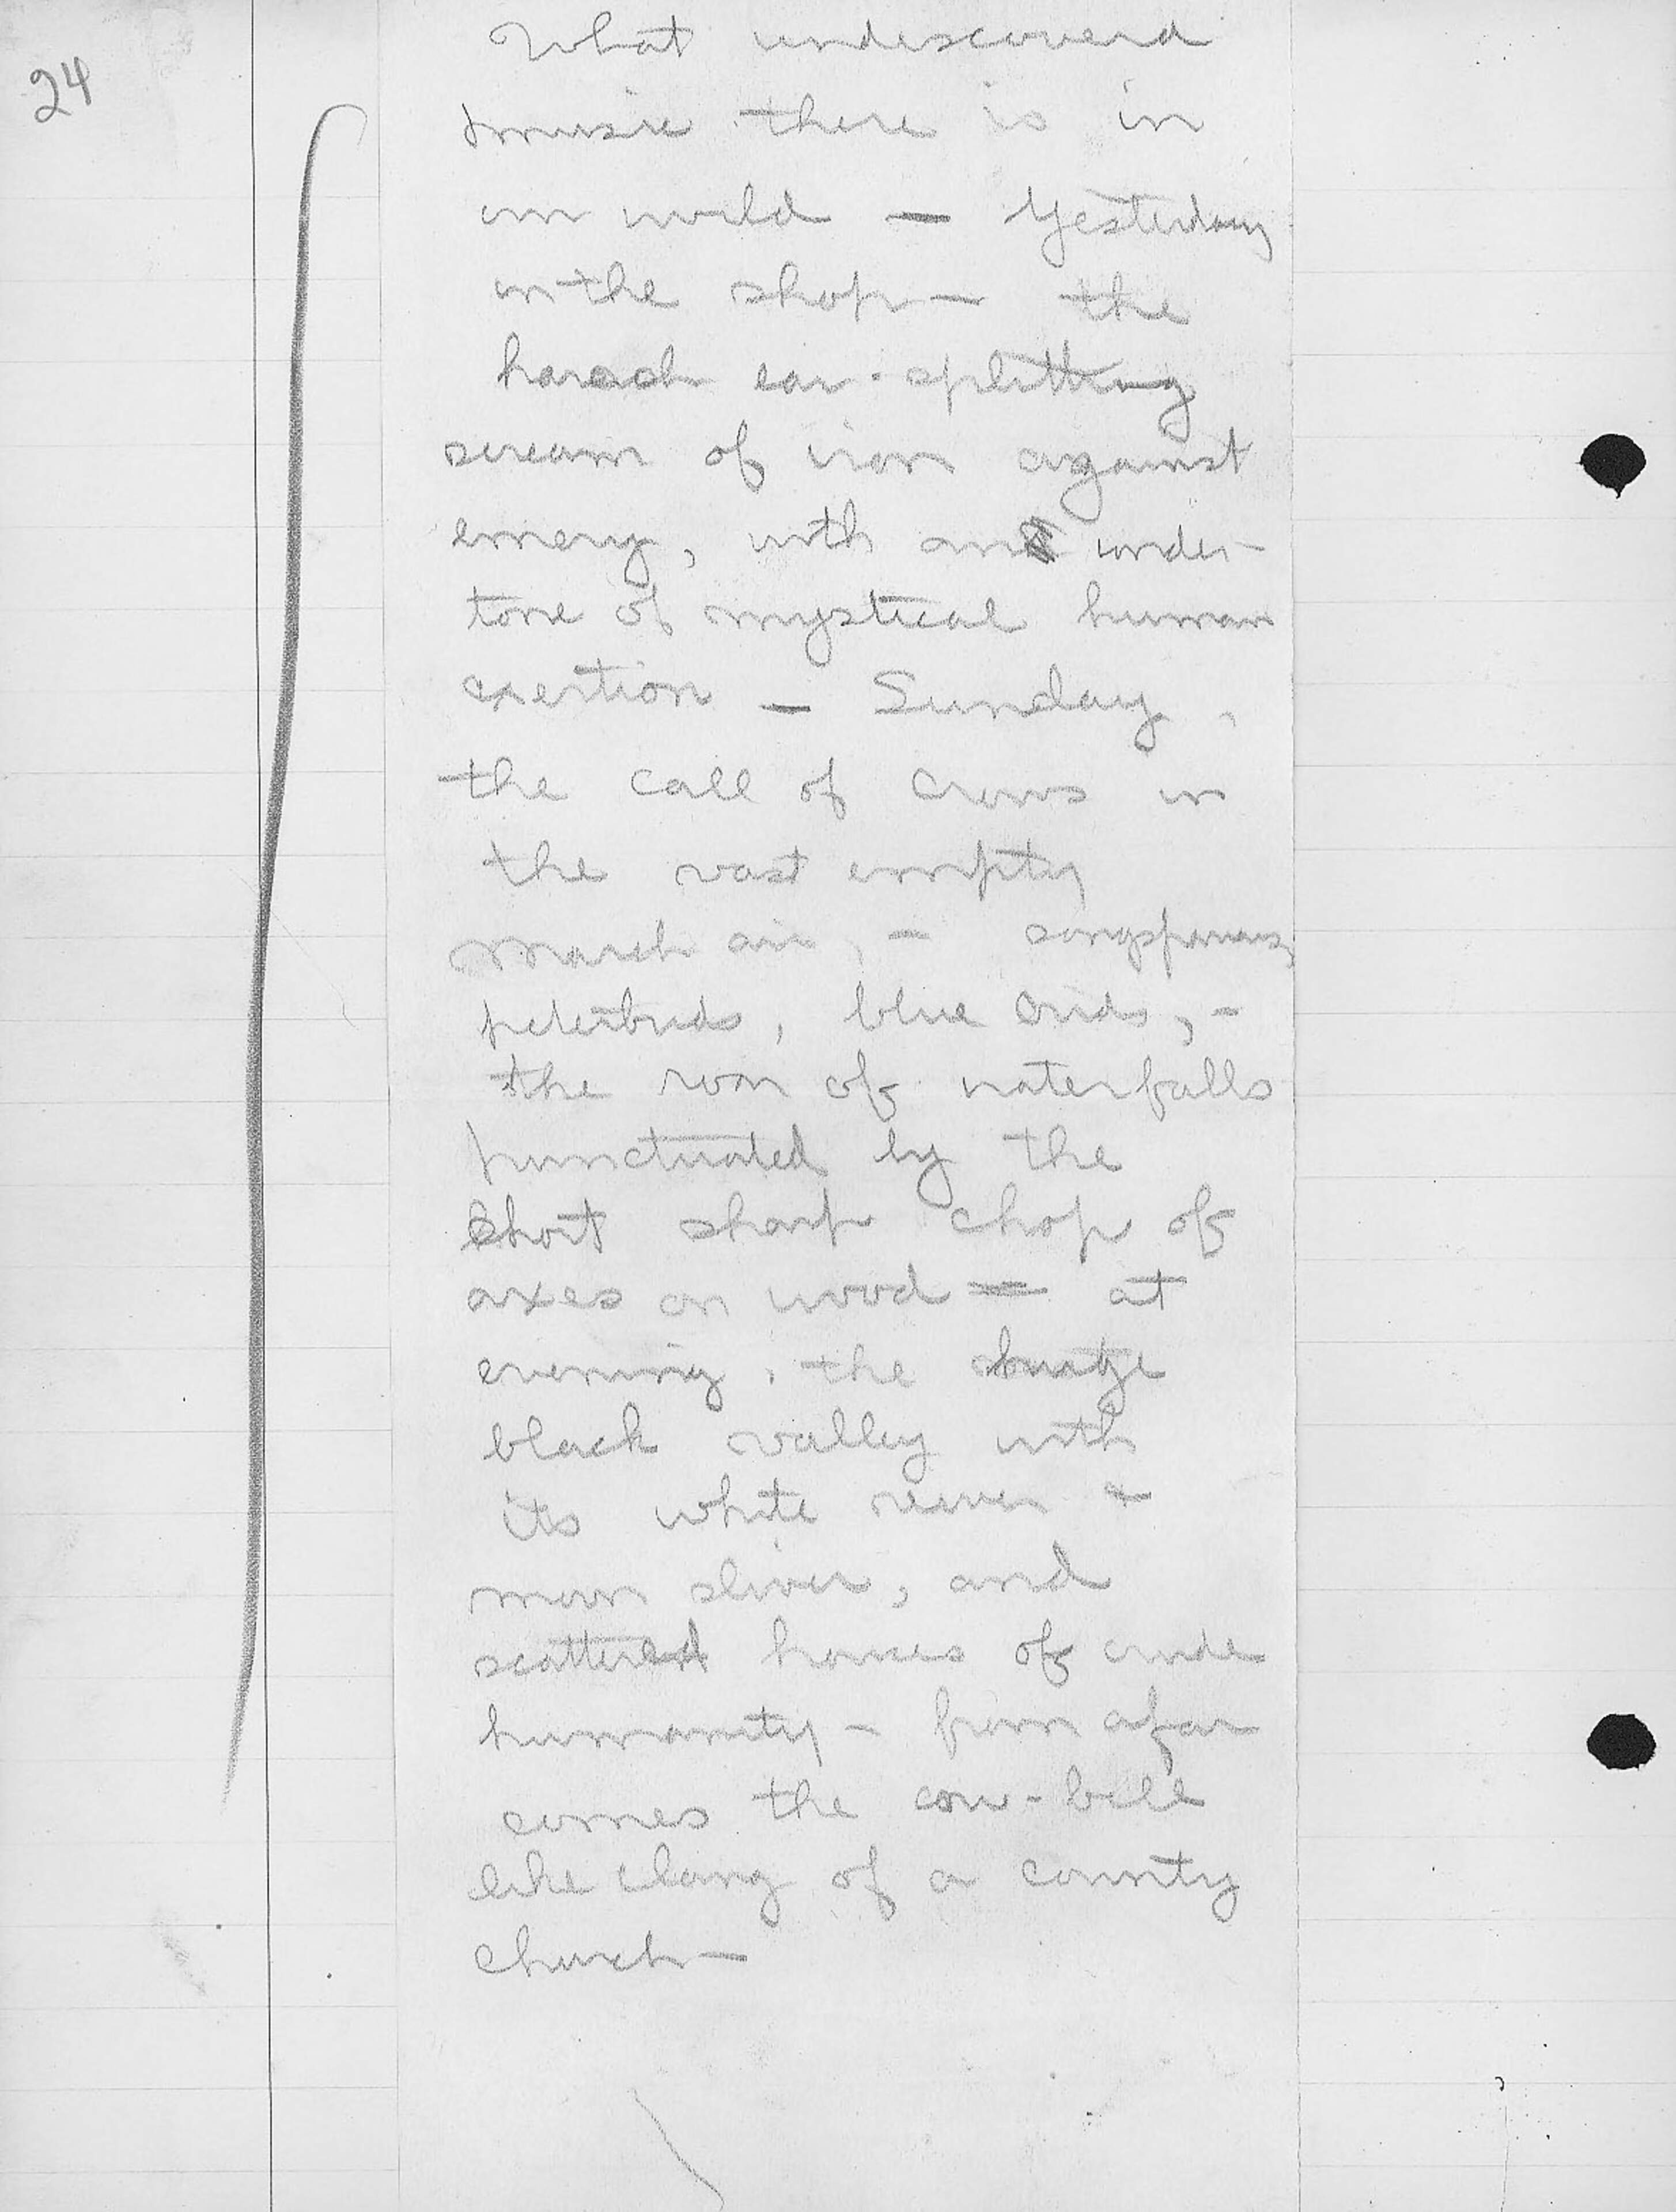 24
What undescoverd
music there is in
our world — Yesterday
in the shop — the
harsh ear-splitting
scream of iron against
emery, with an under-
tone of mystical human
exertion — Sunday,
the call of crows in
the vast empty
March air, — songsparrows
peterbirds, blue birds, —
the roar of waterfalls
punctuated by the
short sharp chop of
axes on wood — at
evening, the huge
black valley with
its white river &
moon sliver, and
scattered houses of crude
humanity — from afar
comes the cow-bell
like clang of a country
church —